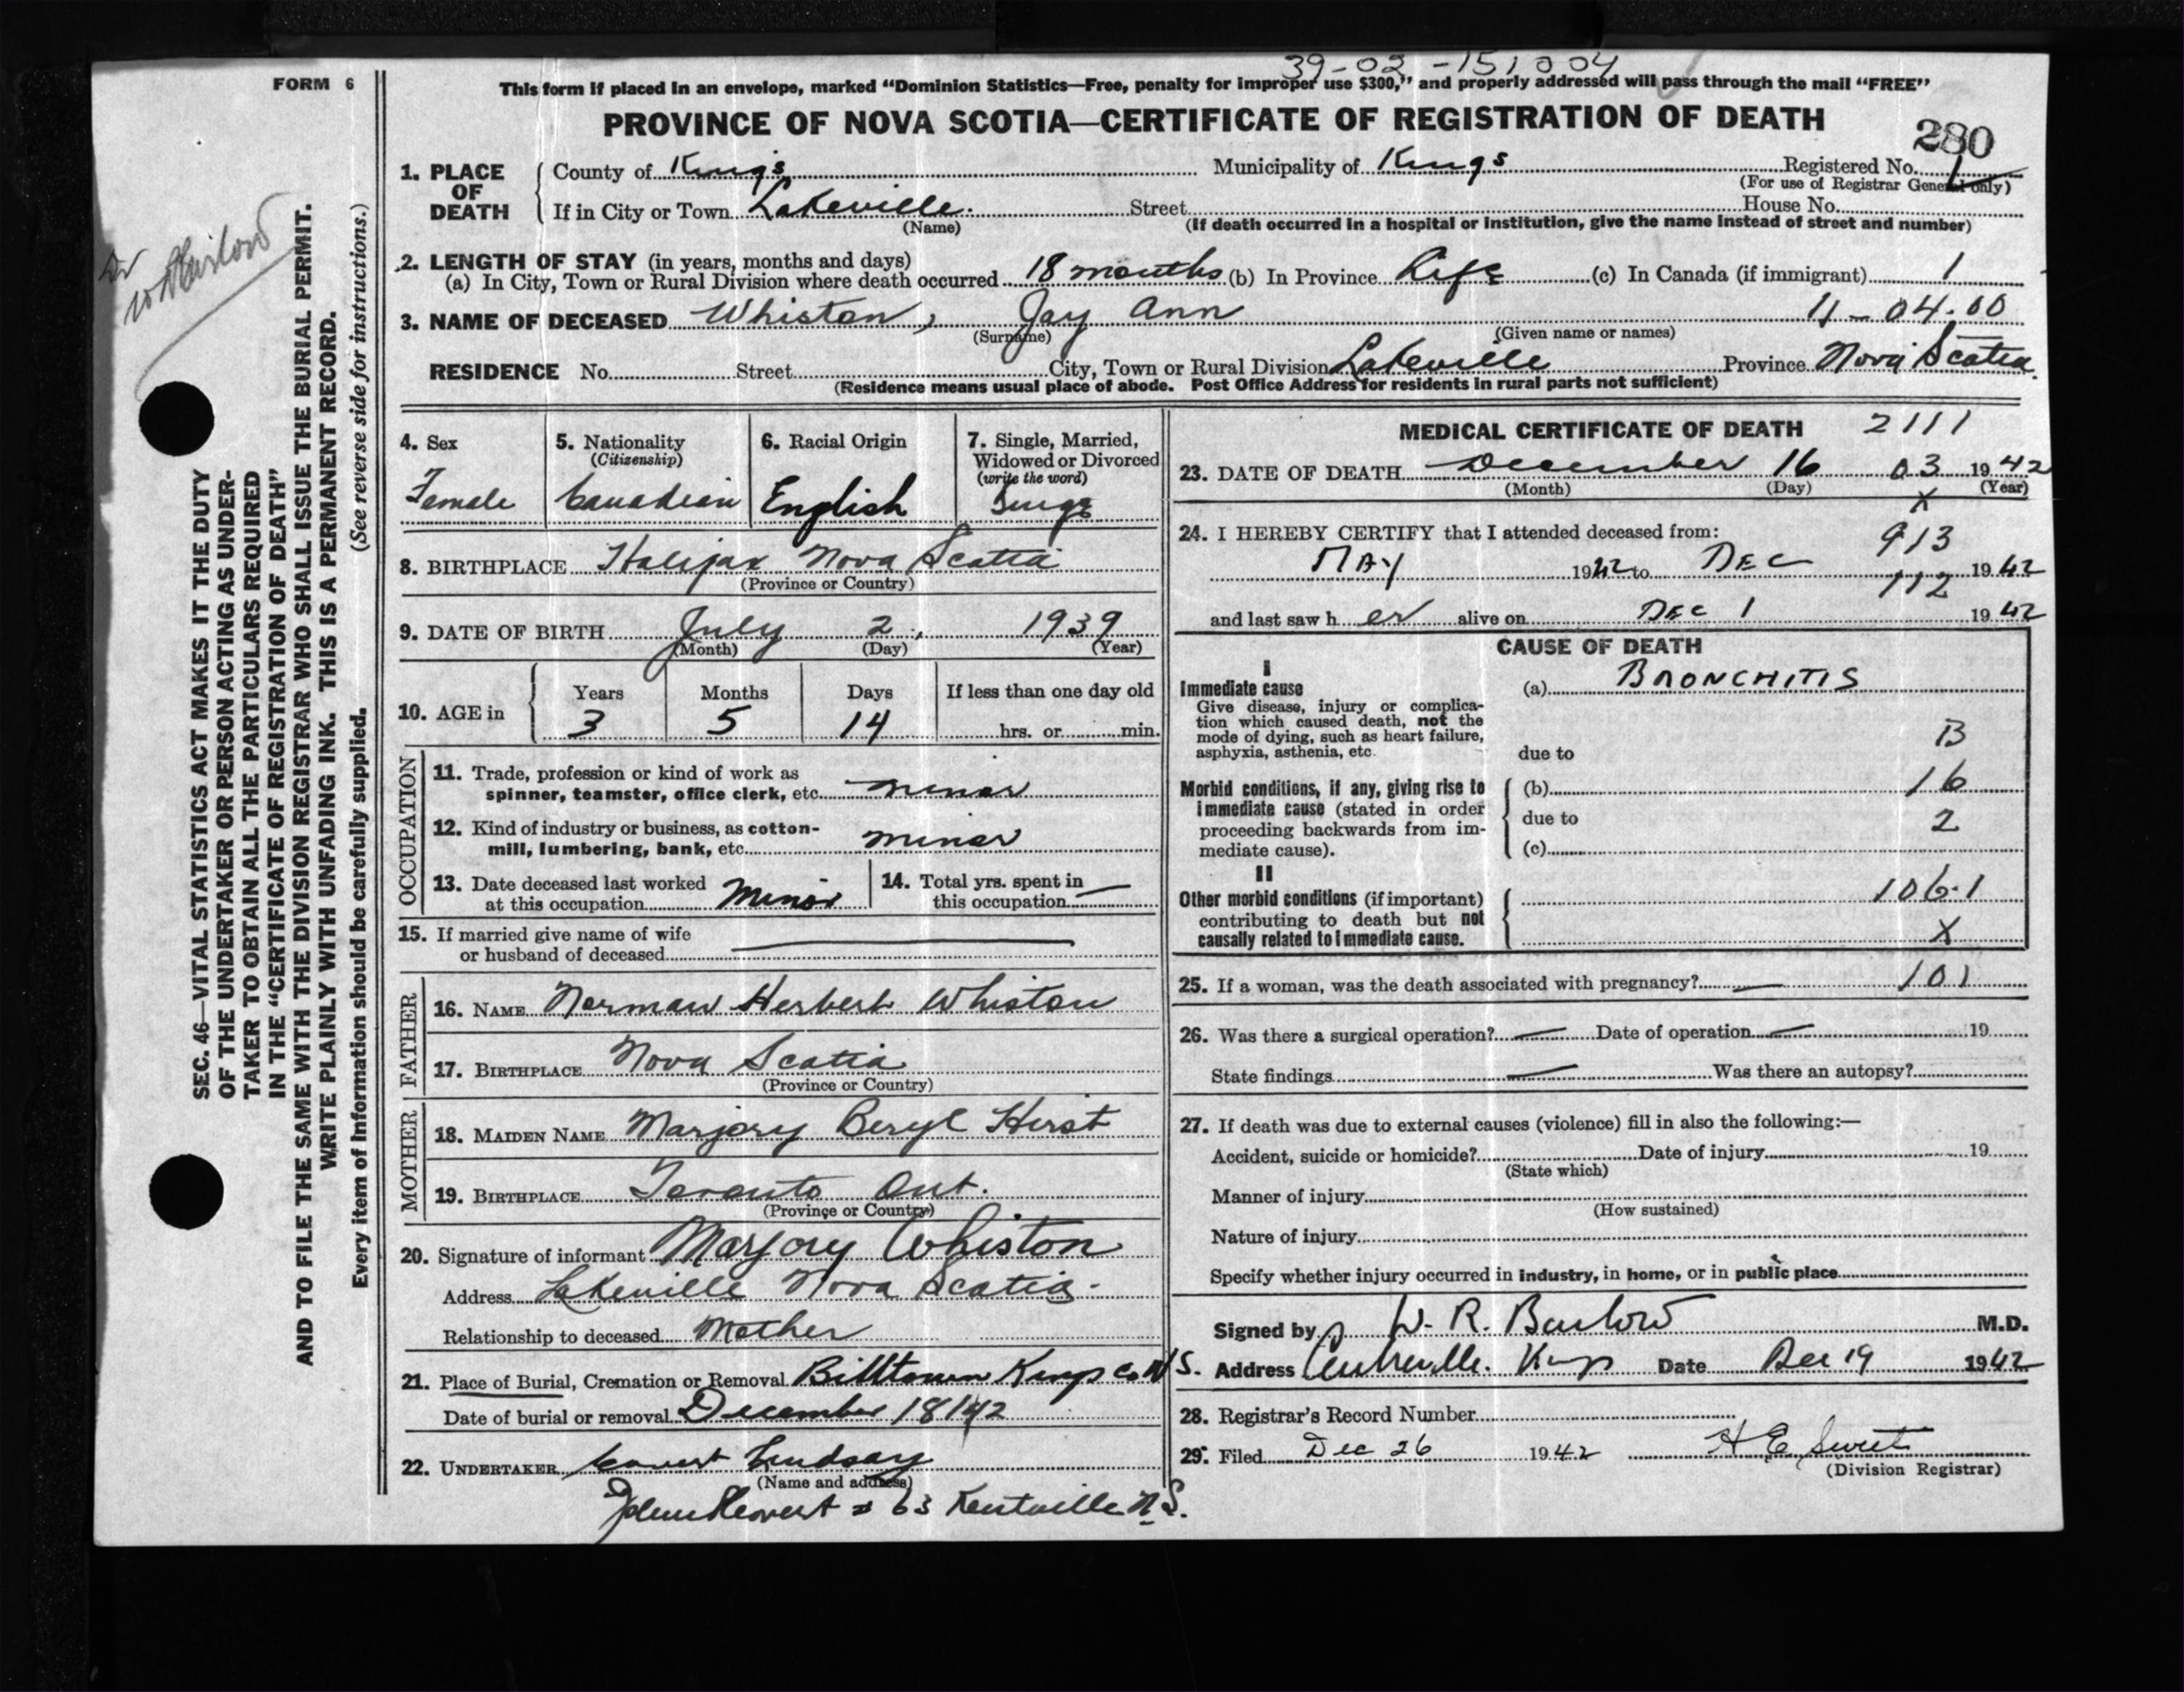 39-02-151004
FORM 6
This form if placed in an envelope, marked "Dominion Statistics—Free, penalty for improper use $300," and properly addressed will pass through the mail "FREE"
PROVINCE OF NOVA SCOTIA—CERTIFICATE OF REGISTRATION OF DEATH
280
1. PLACE OF DEATH County of Kings Municipality of Kings Registered No. 1
(For use of Registrar General only)
If in City or Town Lakeville. Street House No.
(Name) (If death occurred in a hospital or institution, give the name instead of street and number)
2. LENGTH OF STAY (in years, months and days)
(a) In City, Town or Rural Division where death occurred 18 months (b) In Province Life (c) In Canada (if immigrant) 1
3. NAME OF DECEASED Whiston, Jay Ann 11-04.00
(Surname) (Given name or names)
RESIDENCE No. Street City, Town or Rural Division Lakeville Province Nova Scotia
(Residence means usual place of abode. Post Office Address for residents in rural parts not sufficient)
4. Sex
Female
5. Nationality
(Citizenship)
Canadian
6. Racial Origin
English
7. Single, Married,
Widowed or Divorced
(write the word)
Single
8. BIRTHPLACE Halifax Nova Scotia
(Province or Country)
9. DATE OF BIRTH July 2, 1939
(Month) (Day) (Year)
10. AGE in
Years Months Days If less than one day old
3 5 14 hrs. or min.
OCCUPATION
11. Trade, profession or kind of work as
spinner, teamster, office clerk, etc. minor
12. Kind of industry or business, as cotton-
mill, lumbering, bank, etc. minor
13. Date deceased last worked
at this occupation Minor
14. Total yrs. spent in
this occupation —
15. If married give name of wife
or husband of deceased
FATHER
16. NAME Norman Herbert Whiston
17. BIRTHPLACE Nova Scotia
(Province or Country)
MOTHER
18. MAIDEN NAME Marjory Beryl Hirst
19. BIRTHPLACE Toronto Ont.
(Province or Country)
20. Signature of informant Marjory Whiston
Address Lakeville Nova Scotia.
Relationship to deceased Mother
21. Place of Burial, Cremation or Removal Billtown Kings Co N S.
Date of burial or removal December 18 1942
22. UNDERTAKER Lindsay
(Name and address)
63 Kentville N.S.
MEDICAL CERTIFICATE OF DEATH 2111
23. DATE OF DEATH December 16 03 1942
(Month) (Day) (Year)
X
24. I HEREBY CERTIFY that I attended deceased from: 913
MAY 1942 to DEC 1942
112
and last saw her alive on DEC 1 1942
CAUSE OF DEATH
I
Immediate cause
Give disease, injury or complica-
tion which caused death, not the
mode of dying, such as heart failure,
asphyxia, asthenia, etc.
(a) BRONCHITIS
B
due to
Morbid conditions, if any, giving rise to
immediate cause (stated in order
proceeding backwards from im-
mediate cause).
(b) 16
due to 2
(c)
II
Other morbid conditions (if important)
contributing to death but not
causally related to immediate cause.
106.1
X
25. If a woman, was the death associated with pregnancy? — 101
26. Was there a surgical operation? — Date of operation — 19
State findings — Was there an autopsy?
27. If death was due to external causes (violence) fill in also the following:—
Accident, suicide or homicide? Date of injury 19
(State which)
Manner of injury
(How sustained)
Nature of injury
Specify whether injury occurred in industry, in home, or in public place
Signed by W. R. Barlow M.D.
Address Centreville. Kings Date Dec 19 1942
28. Registrar's Record Number
29. Filed Dec 26 1942 H E Sweet
(Division Registrar)
SEC. 46—VITAL STATISTICS ACT MAKES IT THE DUTY
OF THE UNDERTAKER OR PERSON ACTING AS UNDER-
TAKER TO OBTAIN ALL THE PARTICULARS REQUIRED
IN THE "CERTIFICATE OF REGISTRATION OF DEATH"
AND TO FILE THE SAME WITH THE DIVISION REGISTRAR WHO SHALL ISSUE THE BURIAL PERMIT.
WRITE PLAINLY WITH UNFADING INK. THIS IS A PERMANENT RECORD.
Every item of Information should be carefully supplied. (See reverse side for instructions.)
Dr